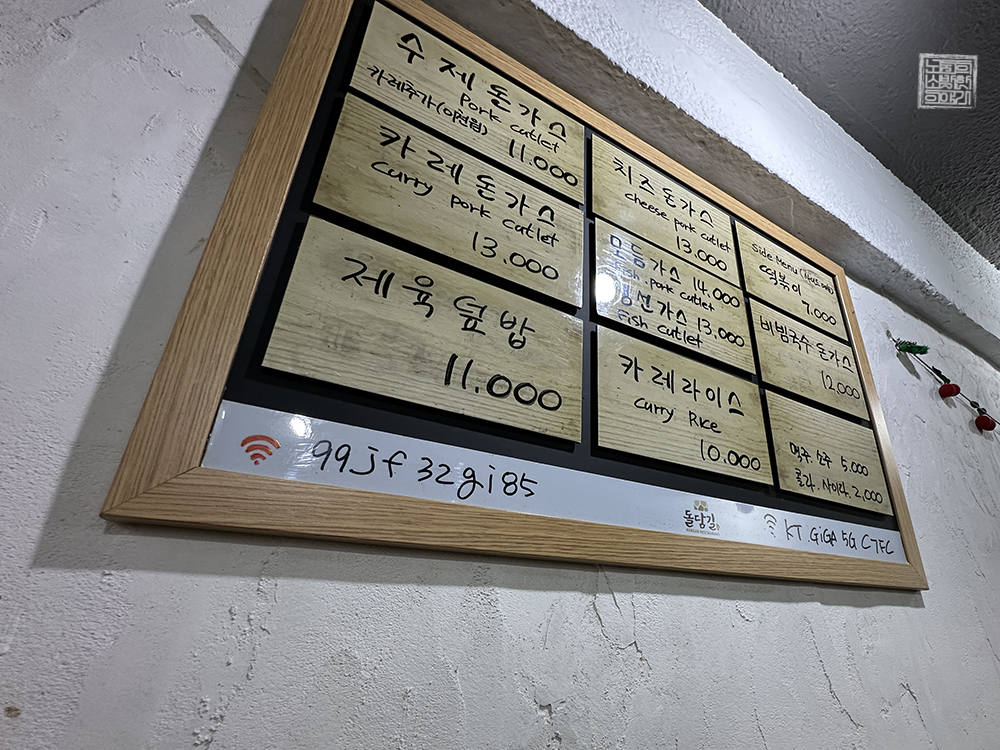 수제돈가스
Pork cutlet
카레추가(이천원)
11.000
카레돈가스
curry pork cutlet
13.000
제육덮밥
11.000
치즈돈가스
cheese pork cutlet
13.000
모듬가스 14.000
Fish.pork cutlet
생선가스 13.000
Fish cutlet
카레라이스
curry Rice
10.000
Side Menu
떡볶이
7.000
비빔국수 돈가스
12,000
맥주.소주 5.000
콜라.사이다.2,000
99jf32gi85
돌담길
KT GiGA 5G C7FC